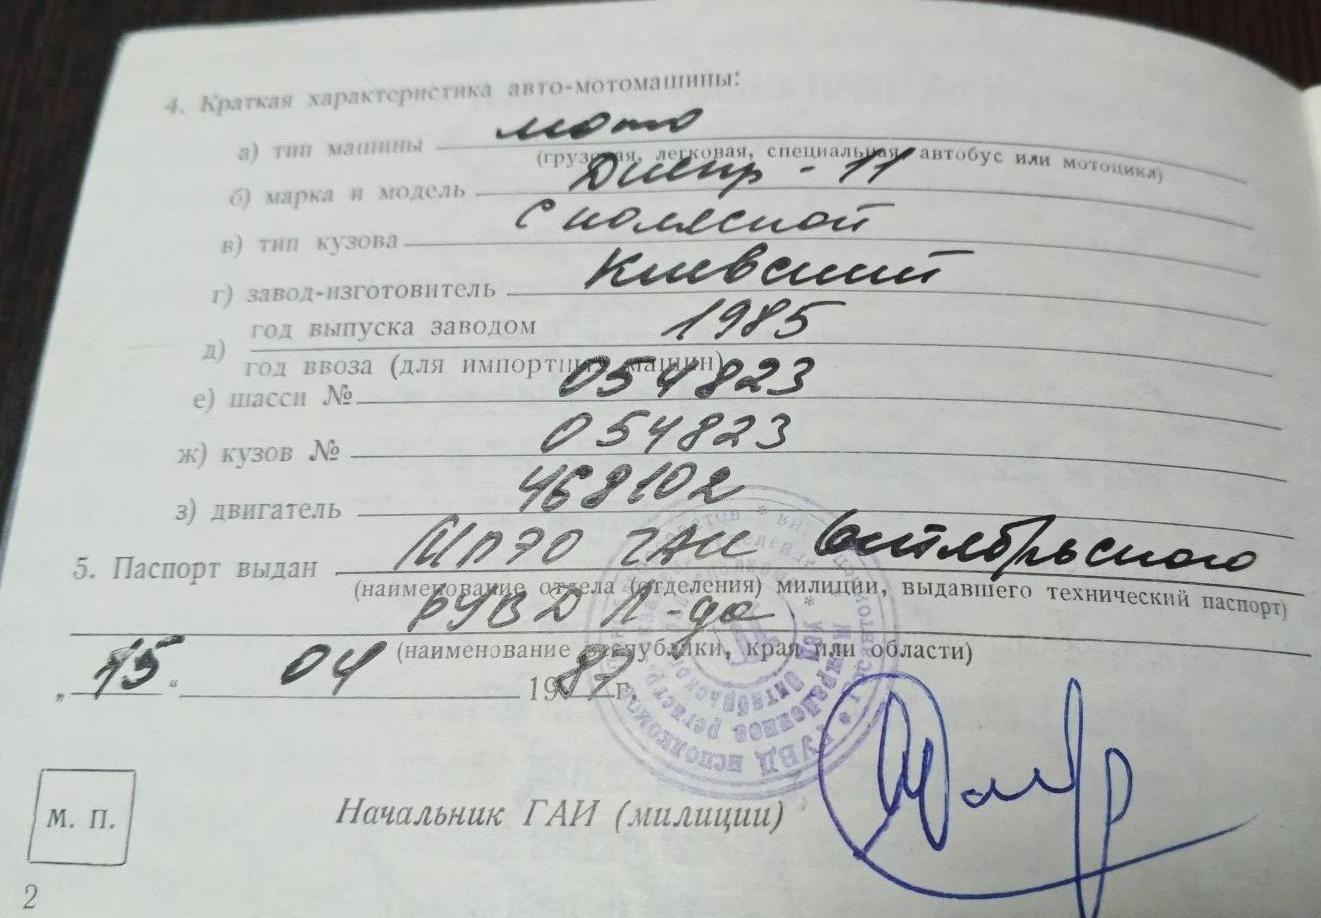 4. Краткая характеристика авто-мотомашины:
а) тип машины мото
(грузовая, легковая, специальная, автобус или мотоцикл)
б) марка и модель Днепр - 11
в) тип кузова с коляской
г) завод-изготовитель Киевский
д) год выпуска заводом 1985
год ввоза (для импортных машин)
е) шасси № 054823
ж) кузов № 054823
з) двигатель 468102
5. Паспорт выдан МРЭО ГАИ Октябрьского
(наименование отдела (отделения) милиции, выдавшего технический паспорт)
РУВД Л-да
(наименование республики, края или области)
„15“ 04 1987 г.
Начальник ГАИ (милиции)
М. П.
2